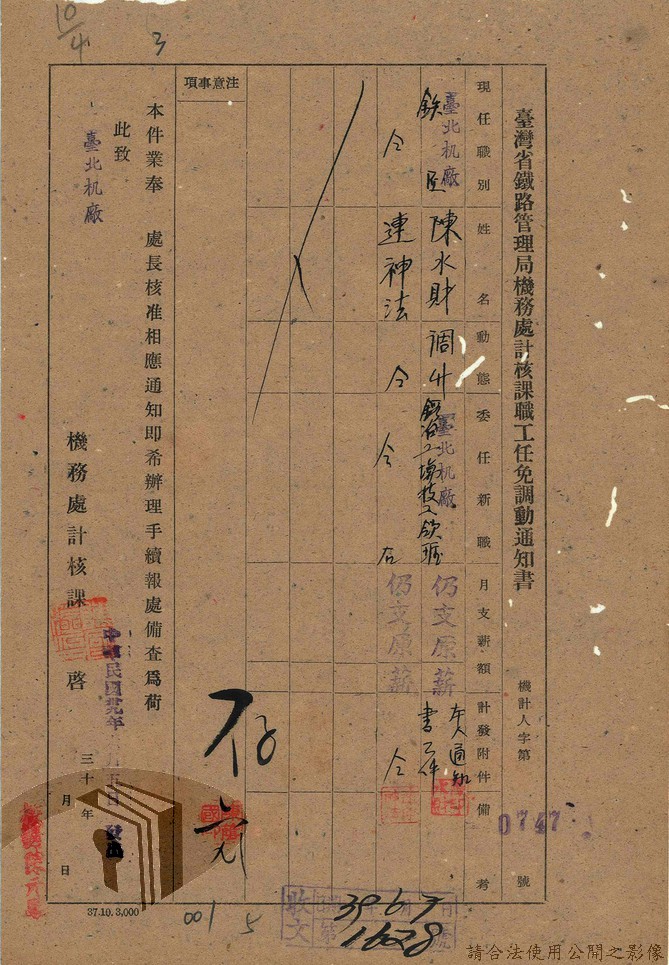 10/4
3
臺灣省鐵路管理局機務處計核課職工任免調動通知書
機計人字第 0747 號
現任職別
姓名
動態
委任新職
月支薪額
計發附件
備考
臺北机廠
鉄 匠
陳水財
調升
臺北机廠
鍛冶工場技工
仍支原薪
本人通知書一件
仝
連神法
仝
仝右
仍支原薪
仝
注意事項
存
本件業奉 處長核准相應通知即希辦理手續報處備查為荷
此致
臺北机廠
機務處計核課 啓
中華民國卅九年
三十 年 月 日
37.10.3,000
001
5
收文
39 6 7
1628
請合法使用公開之影像